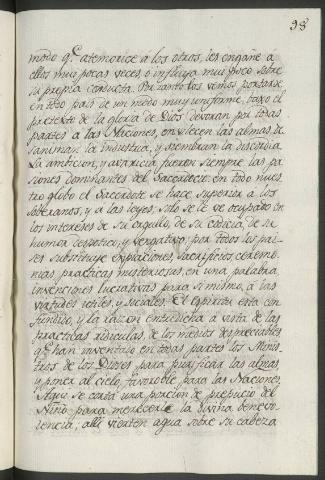 98
modo qᵉ atemorice á los otros, les engañe á
ellos muy pocas veces, o influya muy poco sobre
su propia conducta. Por tanto los vemos portarse
en todo país de un modo muy uniforme, baxo el
pretexto de la gloria de Dios devoran por todas
partes a las Naciones, envilecen las almas
la injusticia, y siembran la discordia.
La ambicion, y avaricia fueron siempre las pa
siones dominantes del Sacerdocio: en todo nues
tro globo el Sacerdote se hace superior á los
soberanos, y a las leyes; solo se le ve ocupado en
los intereses de su orgullo, de su codicia, de su
humor despotico, y vengativo; por todos los pai
ses substituye expiaciones, sacrificios, ceremo
nias, practicas misteriosas, en una palabra,
invenciones lucrativas para sí mismo, á las
virtudes utiles, y sociales. El espiritu está con
fundido, y la razon entredicha á vista de las
practicas ridiculas, de los medios despreciables
qᵉ han inventado en todas partes los Minis
tros de los Dioses para purificar las almas,
y poner al cielo favorable para las Naciones.
Aqui se corta una porcion de prepucio del
Niño para merecerle la divina benevo
lencia; alli vierten agua sobre su cabeza